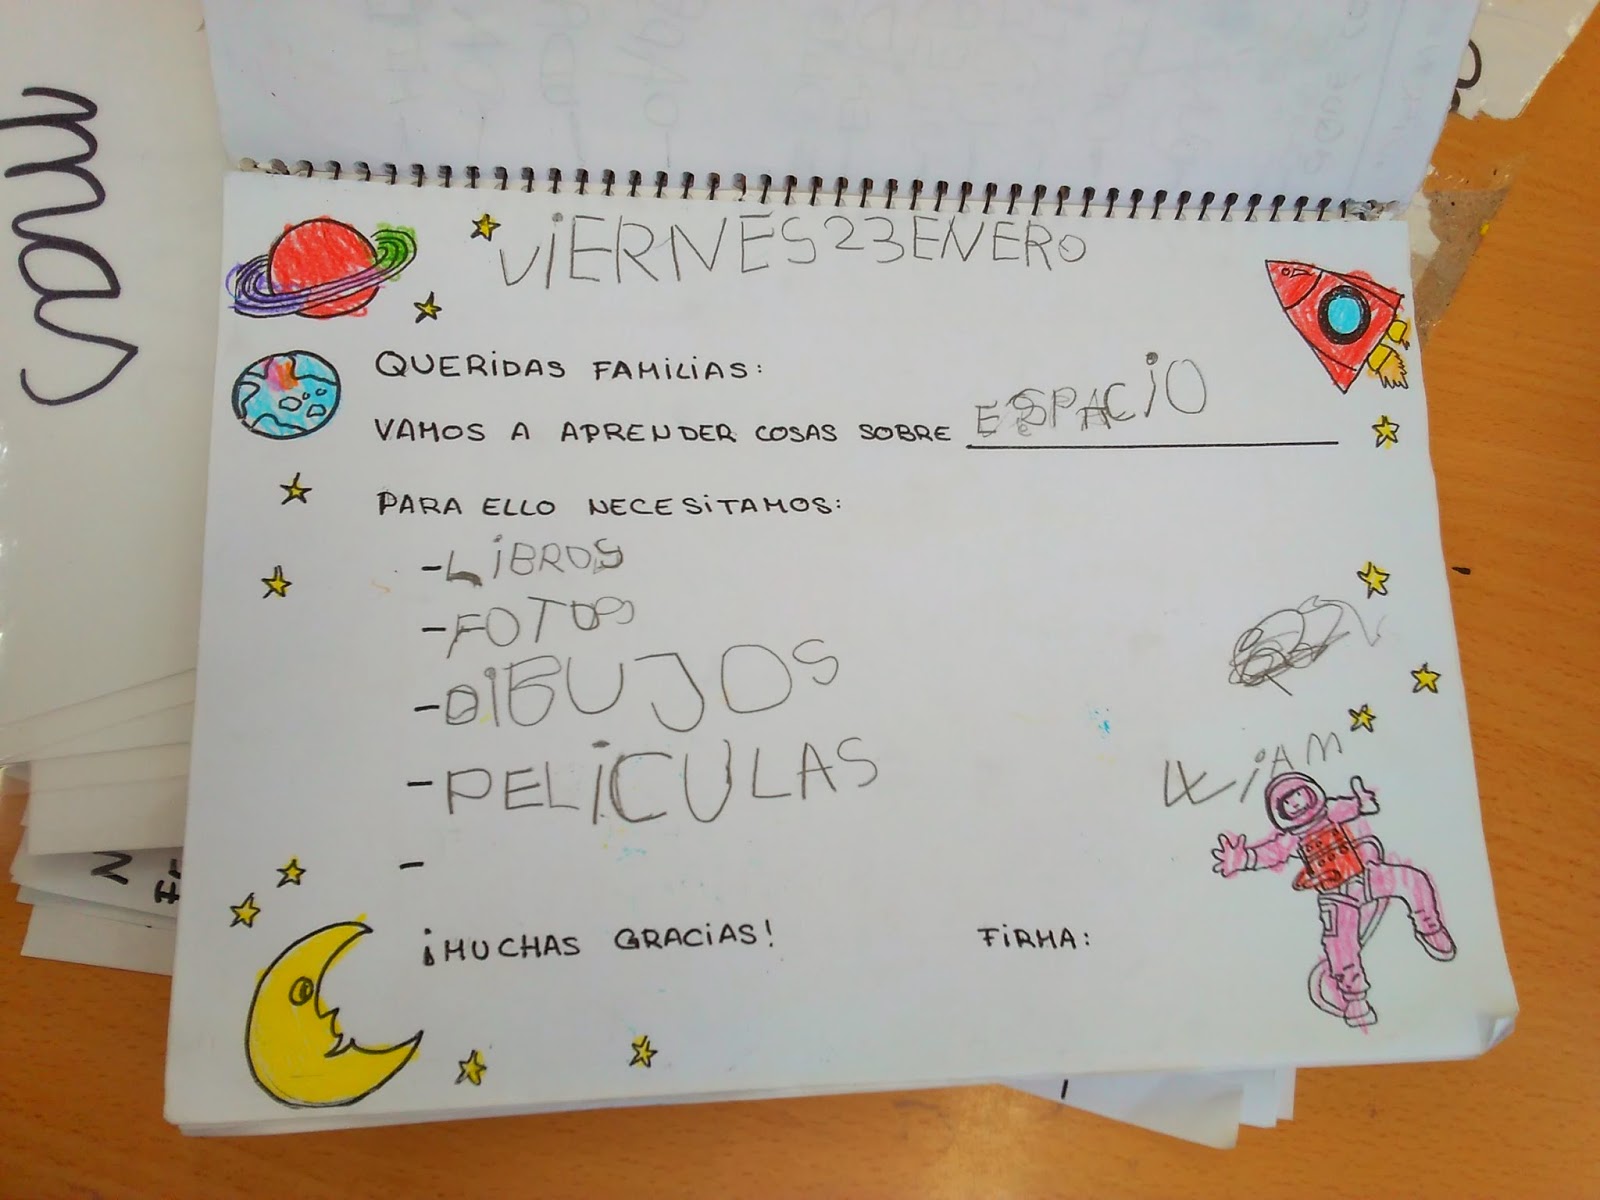 VIERNES 23 ENERO
QUERIDAS FAMILIAS:
VAMOS A APRENDER COSAS SOBRE ESPACIO
PARA ELLO NECESITAMOS:
-LIBROS
-FOTOS
-DIBUJOS
-PELICULAS
-
WIAM
¡MUCHAS GRACIAS! FIRMA:
mas